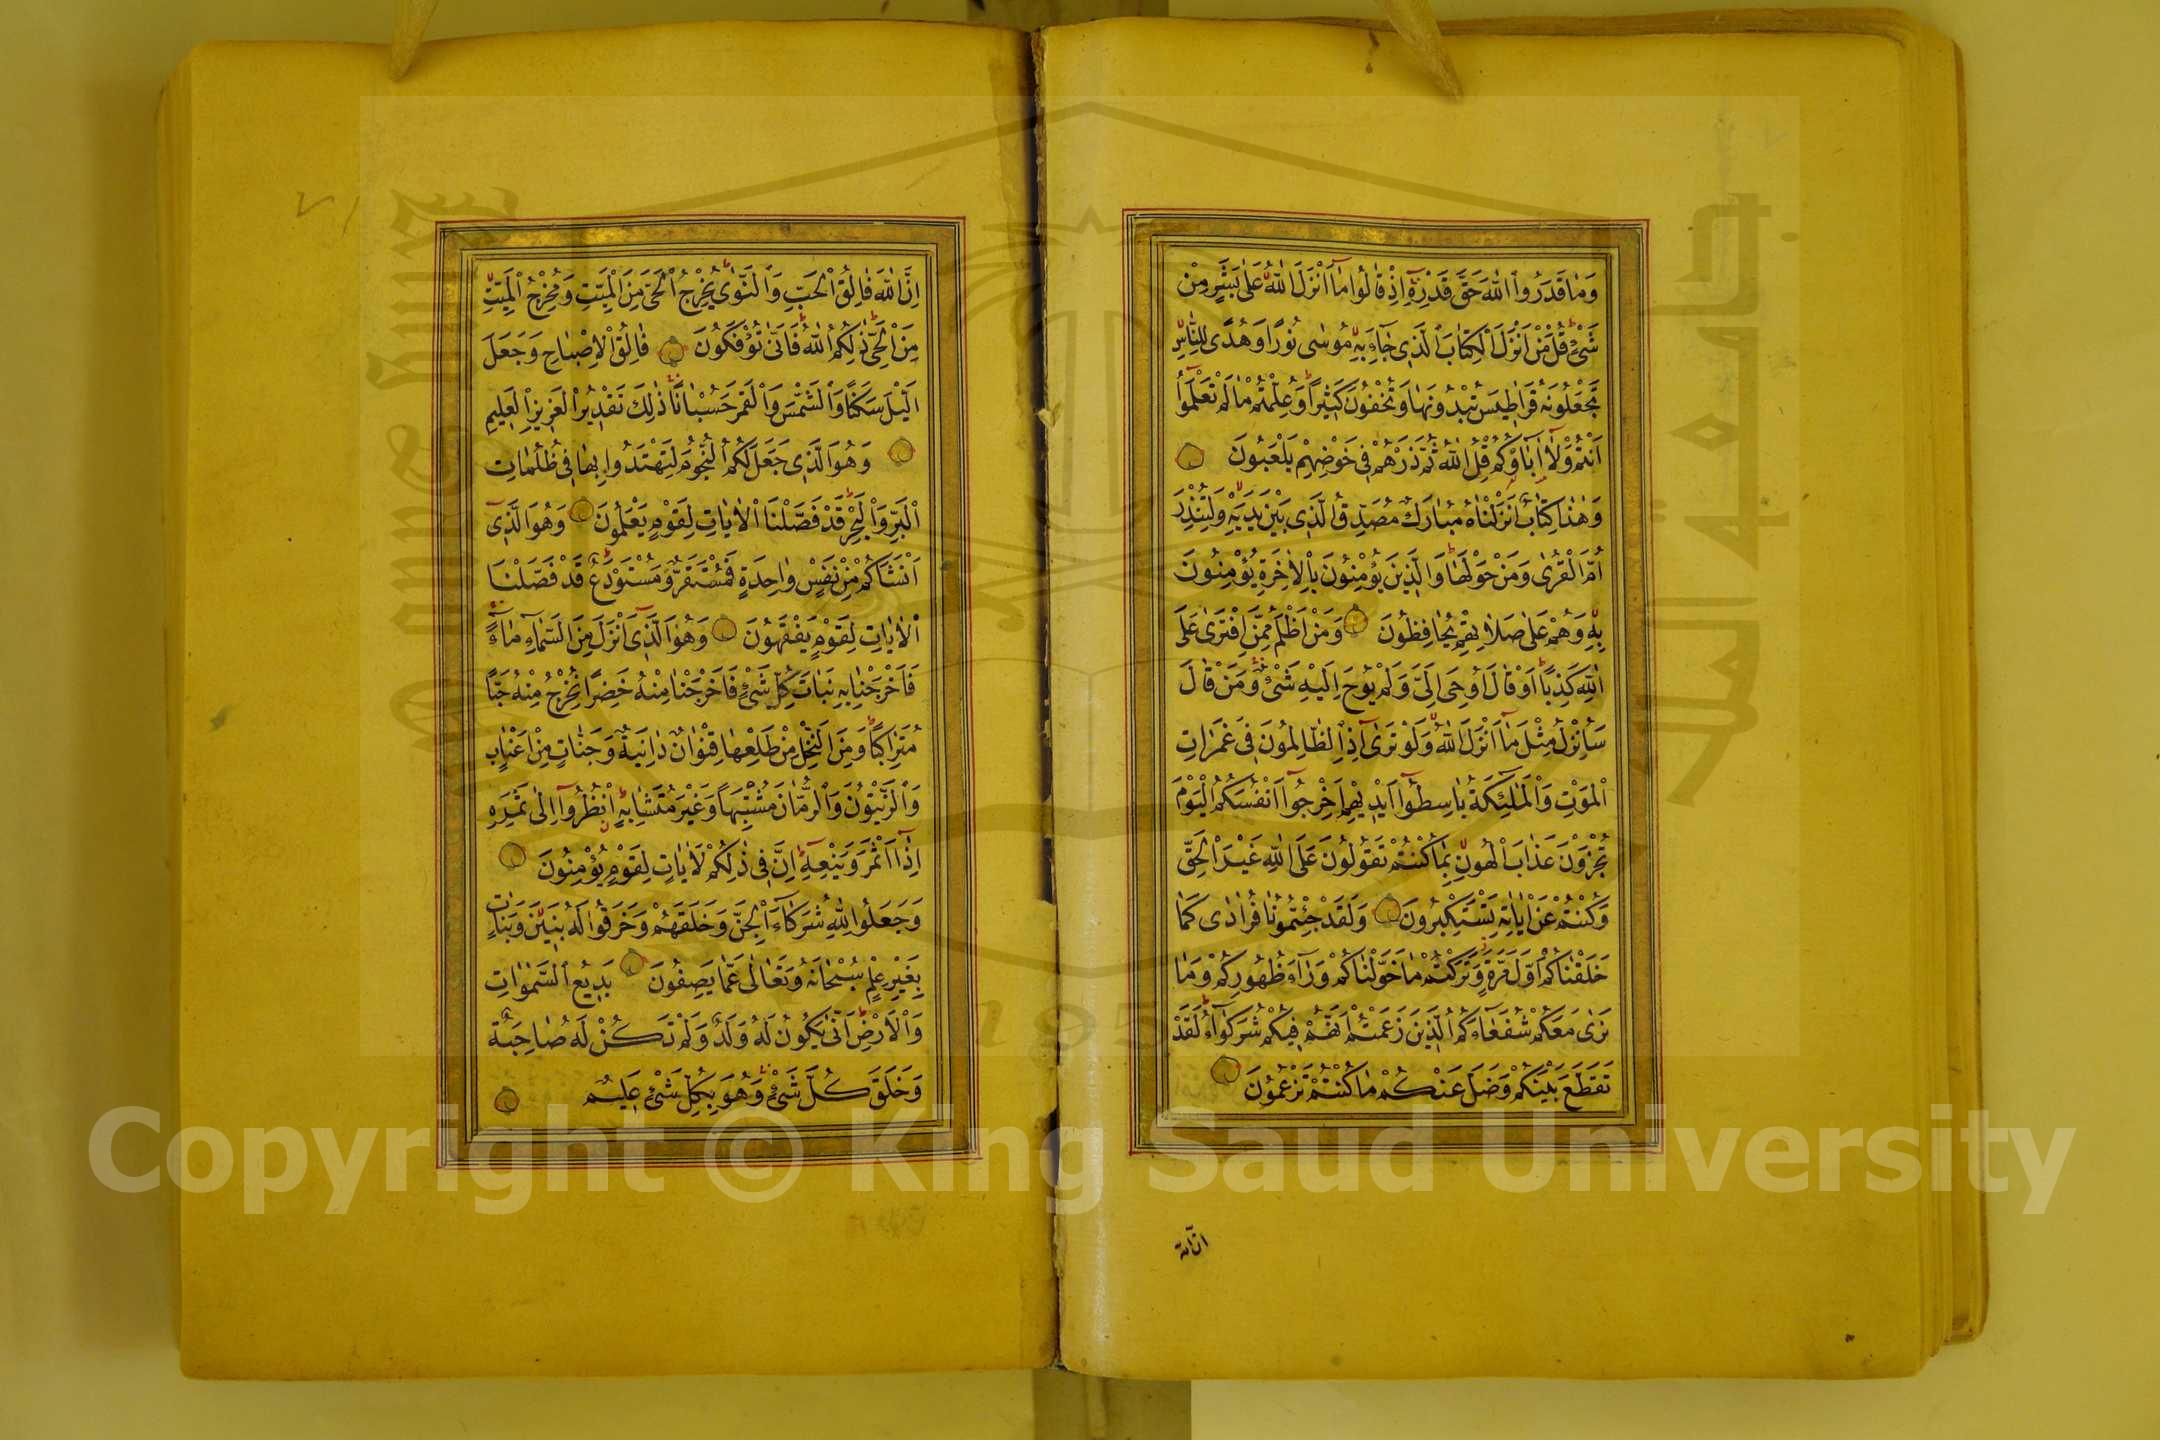 وَمَا قَدَرُوا اللّٰهَ حَقَّ قَدْرِهِ اِذْ قَالُوا مَا اَنْزَلَ اللّٰهُ عَلٰى بَشَرٍ مِنْ
شَيْءٍ قُلْ مَنْ اَنْزَلَ الْكِتَابَ الَّذِي جَاءَ بِهِ مُوسٰى نُورًا وَهُدًى لِلنَّاسِ
تَجْعَلُونَهُ قَرَاطِيسَ تُبْدُونَهَا وَتُخْفُونَ كَثِيرًا وَعُلِّمْتُمْ مَا لَمْ تَعْلَمُوا
اَنْتُمْ وَلَا اٰبَاؤُكُمْ قُلِ اللّٰهُ ثُمَّ ذَرْهُمْ فِي خَوْضِهِمْ يَلْعَبُونَ
وَهٰذَا كِتَابٌ اَنْزَلْنَاهُ مُبَارَكٌ مُصَدِّقُ الَّذِي بَيْنَ يَدَيْهِ وَلِتُنْذِرَ
اُمَّ الْقُرٰى وَمَنْ حَوْلَهَا وَالَّذِينَ يُؤْمِنُونَ بِالْاٰخِرَةِ يُؤْمِنُونَ
بِهِ وَهُمْ عَلٰى صَلَاتِهِمْ يُحَافِظُونَ وَمَنْ اَظْلَمُ مِمَّنِ افْتَرٰى عَلَى
اللّٰهِ كَذِبًا اَوْ قَالَ اُوحِيَ اِلَيَّ وَلَمْ يُوحَ اِلَيْهِ شَيْءٌ وَمَنْ قَالَ
سَاُنْزِلُ مِثْلَ مَا اَنْزَلَ اللّٰهُ وَلَوْ تَرٰى اِذِ الظَّالِمُونَ فِي غَمَرَاتِ
الْمَوْتِ وَالْمَلٰئِكَةُ بَاسِطُوا اَيْدِيهِمْ اَخْرِجُوا اَنْفُسَكُمُ الْيَوْمَ
تُجْزَوْنَ عَذَابَ الْهُونِ بِمَا كُنْتُمْ تَقُولُونَ عَلَى اللّٰهِ غَيْرَ الْحَقِّ
وَكُنْتُمْ عَنْ اٰيَاتِهِ تَسْتَكْبِرُونَ وَلَقَدْ جِئْتُمُونَا فُرَادٰى كَمَا
خَلَقْنَاكُمْ اَوَّلَ مَرَّةٍ وَتَرَكْتُمْ مَا خَوَّلْنَاكُمْ وَرَاءَ ظُهُورِكُمْ وَمَا
نَرٰى مَعَكُمْ شُفَعَاءَكُمُ الَّذِينَ زَعَمْتُمْ اَنَّهُمْ فِيكُمْ شُرَكٰؤُا لَقَدْ
تَقَطَّعَ بَيْنَكُمْ وَضَلَّ عَنْكُمْ مَا كُنْتُمْ تَزْعُمُونَ
ان الله
٧١
اِنَّ اللّٰهَ فَالِقُ الْحَبِّ وَالنَّوٰى يُخْرِجُ الْحَيَّ مِنَ الْمَيِّتِ وَمُخْرِجُ الْمَيِّتِ
مِنَ الْحَيِّ ذٰلِكُمُ اللّٰهُ فَاَنّٰى تُؤْفَكُونَ فَالِقُ الْاِصْبَاحِ وَجَعَلَ
الَّيْلَ سَكَنًا وَالشَّمْسَ وَالْقَمَرَ حُسْبَانًا ذٰلِكَ تَقْدِيرُ الْعَزِيزِ الْعَلِيمِ
وَهُوَ الَّذِي جَعَلَ لَكُمُ النُّجُومَ لِتَهْتَدُوا بِهَا فِي ظُلُمَاتِ
الْبَرِّ وَالْبَحْرِ قَدْ فَصَّلْنَا الْاٰيَاتِ لِقَوْمٍ يَعْلَمُونَ وَهُوَ الَّذِي
اَنْشَاَكُمْ مِنْ نَفْسٍ وَاحِدَةٍ فَمُسْتَقَرٌّ وَمُسْتَوْدَعٌ قَدْ فَصَّلْنَا
الْاٰيَاتِ لِقَوْمٍ يَفْقَهُونَ وَهُوَ الَّذِي اَنْزَلَ مِنَ السَّمَاءِ مَاءً
فَاَخْرَجْنَا بِهِ نَبَاتَ كُلِّ شَيْءٍ فَاَخْرَجْنَا مِنْهُ خَضِرًا نُخْرِجُ مِنْهُ حَبًّا
مُتَرَاكِبًا وَمِنَ النَّخْلِ مِنْ طَلْعِهَا قِنْوَانٌ دَانِيَةٌ وَجَنَّاتٍ مِنْ اَعْنَابٍ
وَالزَّيْتُونَ وَالرُّمَّانَ مُشْتَبِهًا وَغَيْرَ مُتَشَابِهٍ اُنْظُرُوا اِلٰى ثَمَرِهِ
اِذَا اَثْمَرَ وَيَنْعِهِ اِنَّ فِي ذٰلِكُمْ لَاٰيَاتٍ لِقَوْمٍ يُؤْمِنُونَ
وَجَعَلُوا لِلّٰهِ شُرَكَاءَ الْجِنَّ وَخَلَقَهُمْ وَخَرَقُوا لَهُ بَنِينَ وَبَنَاتٍ
بِغَيْرِ عِلْمٍ سُبْحَانَهُ وَتَعَالٰى عَمَّا يَصِفُونَ بَدِيعُ السَّمٰوَاتِ
وَالْاَرْضِ اَنّٰى يَكُونُ لَهُ وَلَدٌ وَلَمْ تَكُنْ لَهُ صَاحِبَةٌ
وَخَلَقَ كُلَّ شَيْءٍ وَهُوَ بِكُلِّ شَيْءٍ عَلِيمٌ
Copyright © King Saud University